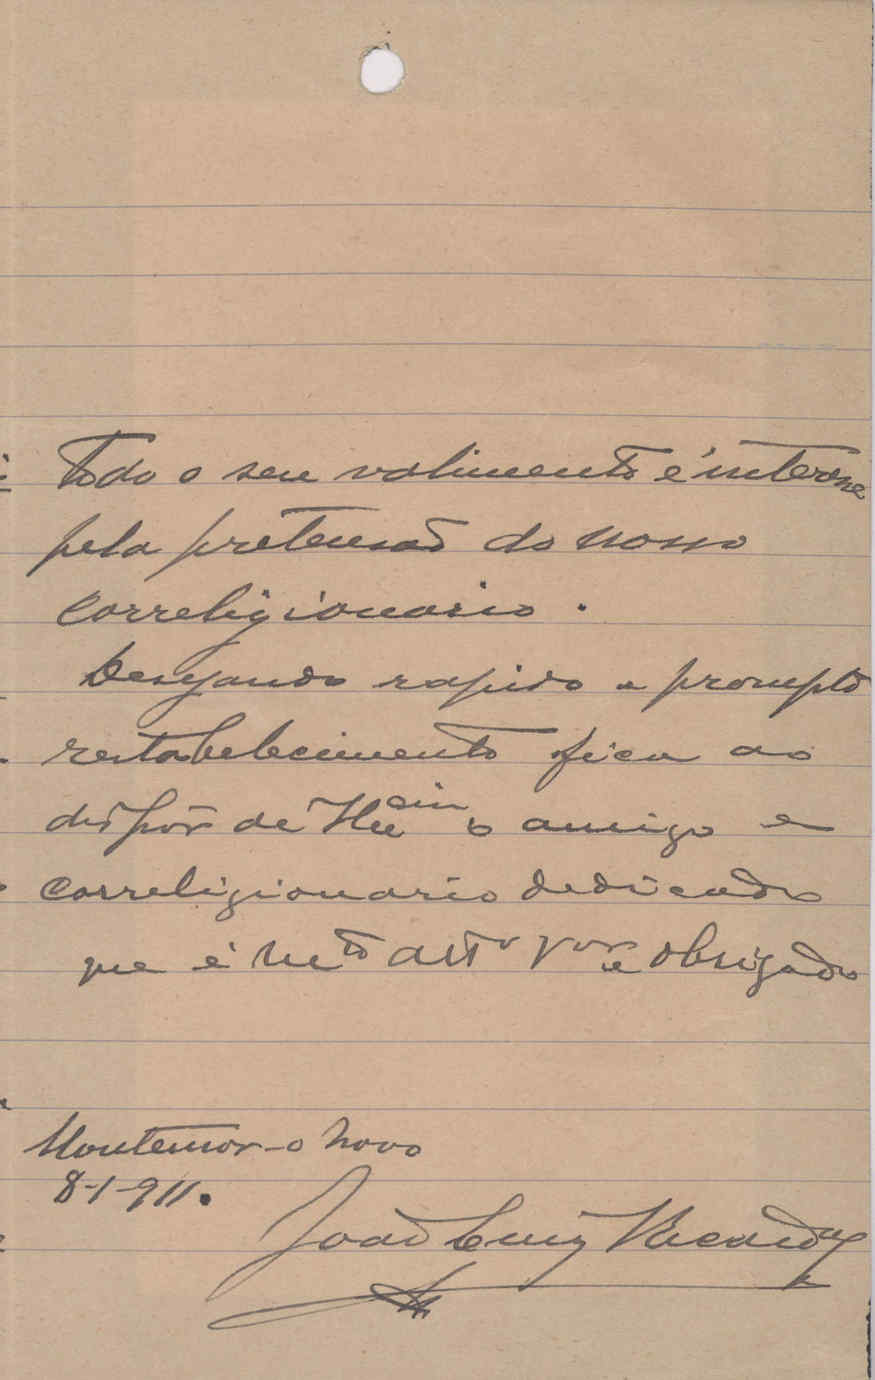 Todo o seu valimento é interesse
pela pretensão do nosso
correligionario.
Desejando rapido e prompto
restabelecimento fica ao
dispôr de V. Ex.cia o amigo e
correligionario dedicado
que é m.to att.o v.or e obrigado
Montemor-o Novo
8-1-911.
João Luiz Ricardo